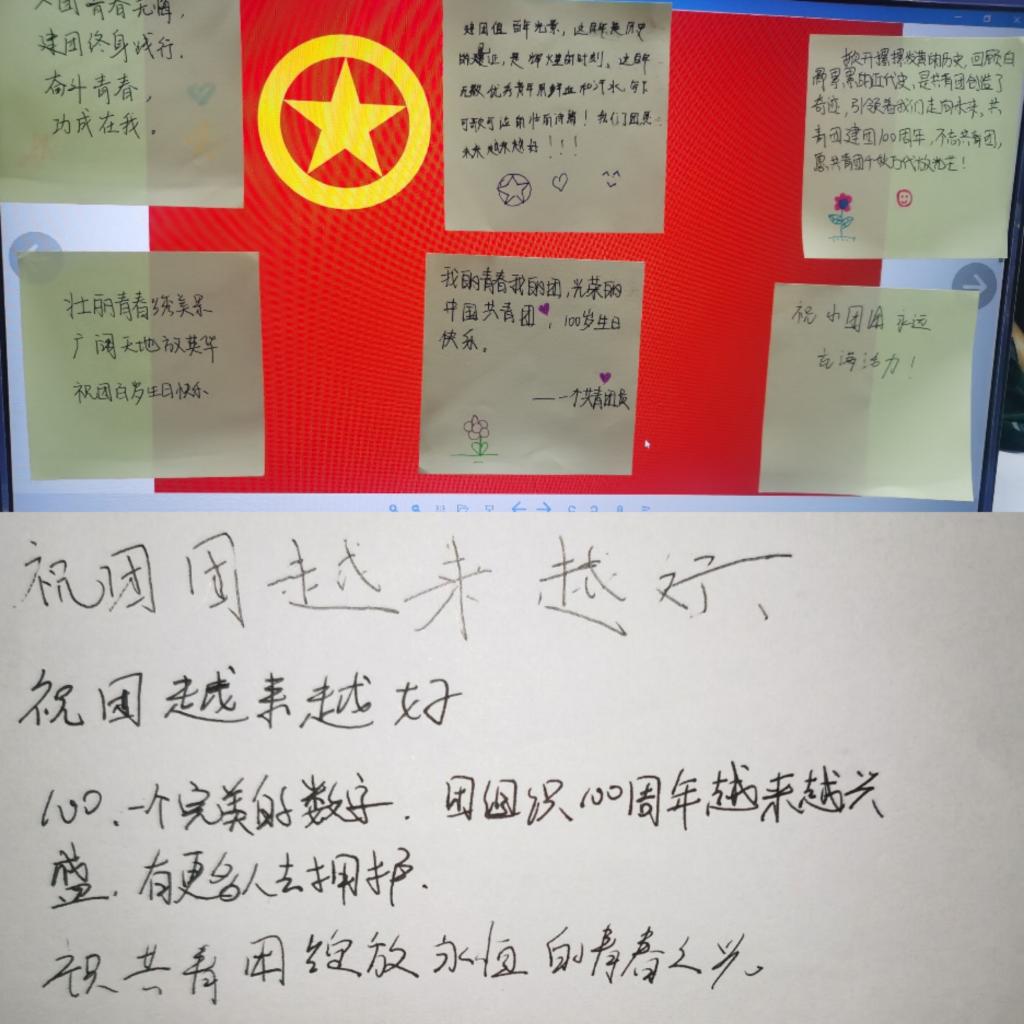 入团青春无悔,
建团终身践行.
奋斗青春,
功成在我。
建团值百年光景,这百年是历史
的见证,是辉煌的时刻。这百年
无数优秀青年用鲜血和汗水,写下
可歌可泣的壮丽诗篇!我们团员
未来越来越好!!!
掀开摞摞发黄的历史,回顾白
骨累累的近代史,是共青团创造了
奇迹,引领着我们走向未来。共
青团建团100周年,不忘共青团,
愿共青团千秋万代放光芒!
壮丽青春绕美景
广阔天地放英华
祝团百岁生日快乐
我的青春我的团,光荣的
中国共青团,100岁生日
快乐。
——一个共青团员
祝中国团永远
充满活力!
祝团团越来越好、
祝团越来越好
100、一个完美的数字.团组织100周年越来越兴
盛.有更多人去拥护.
祝共青团绽放永恒的青春之光。